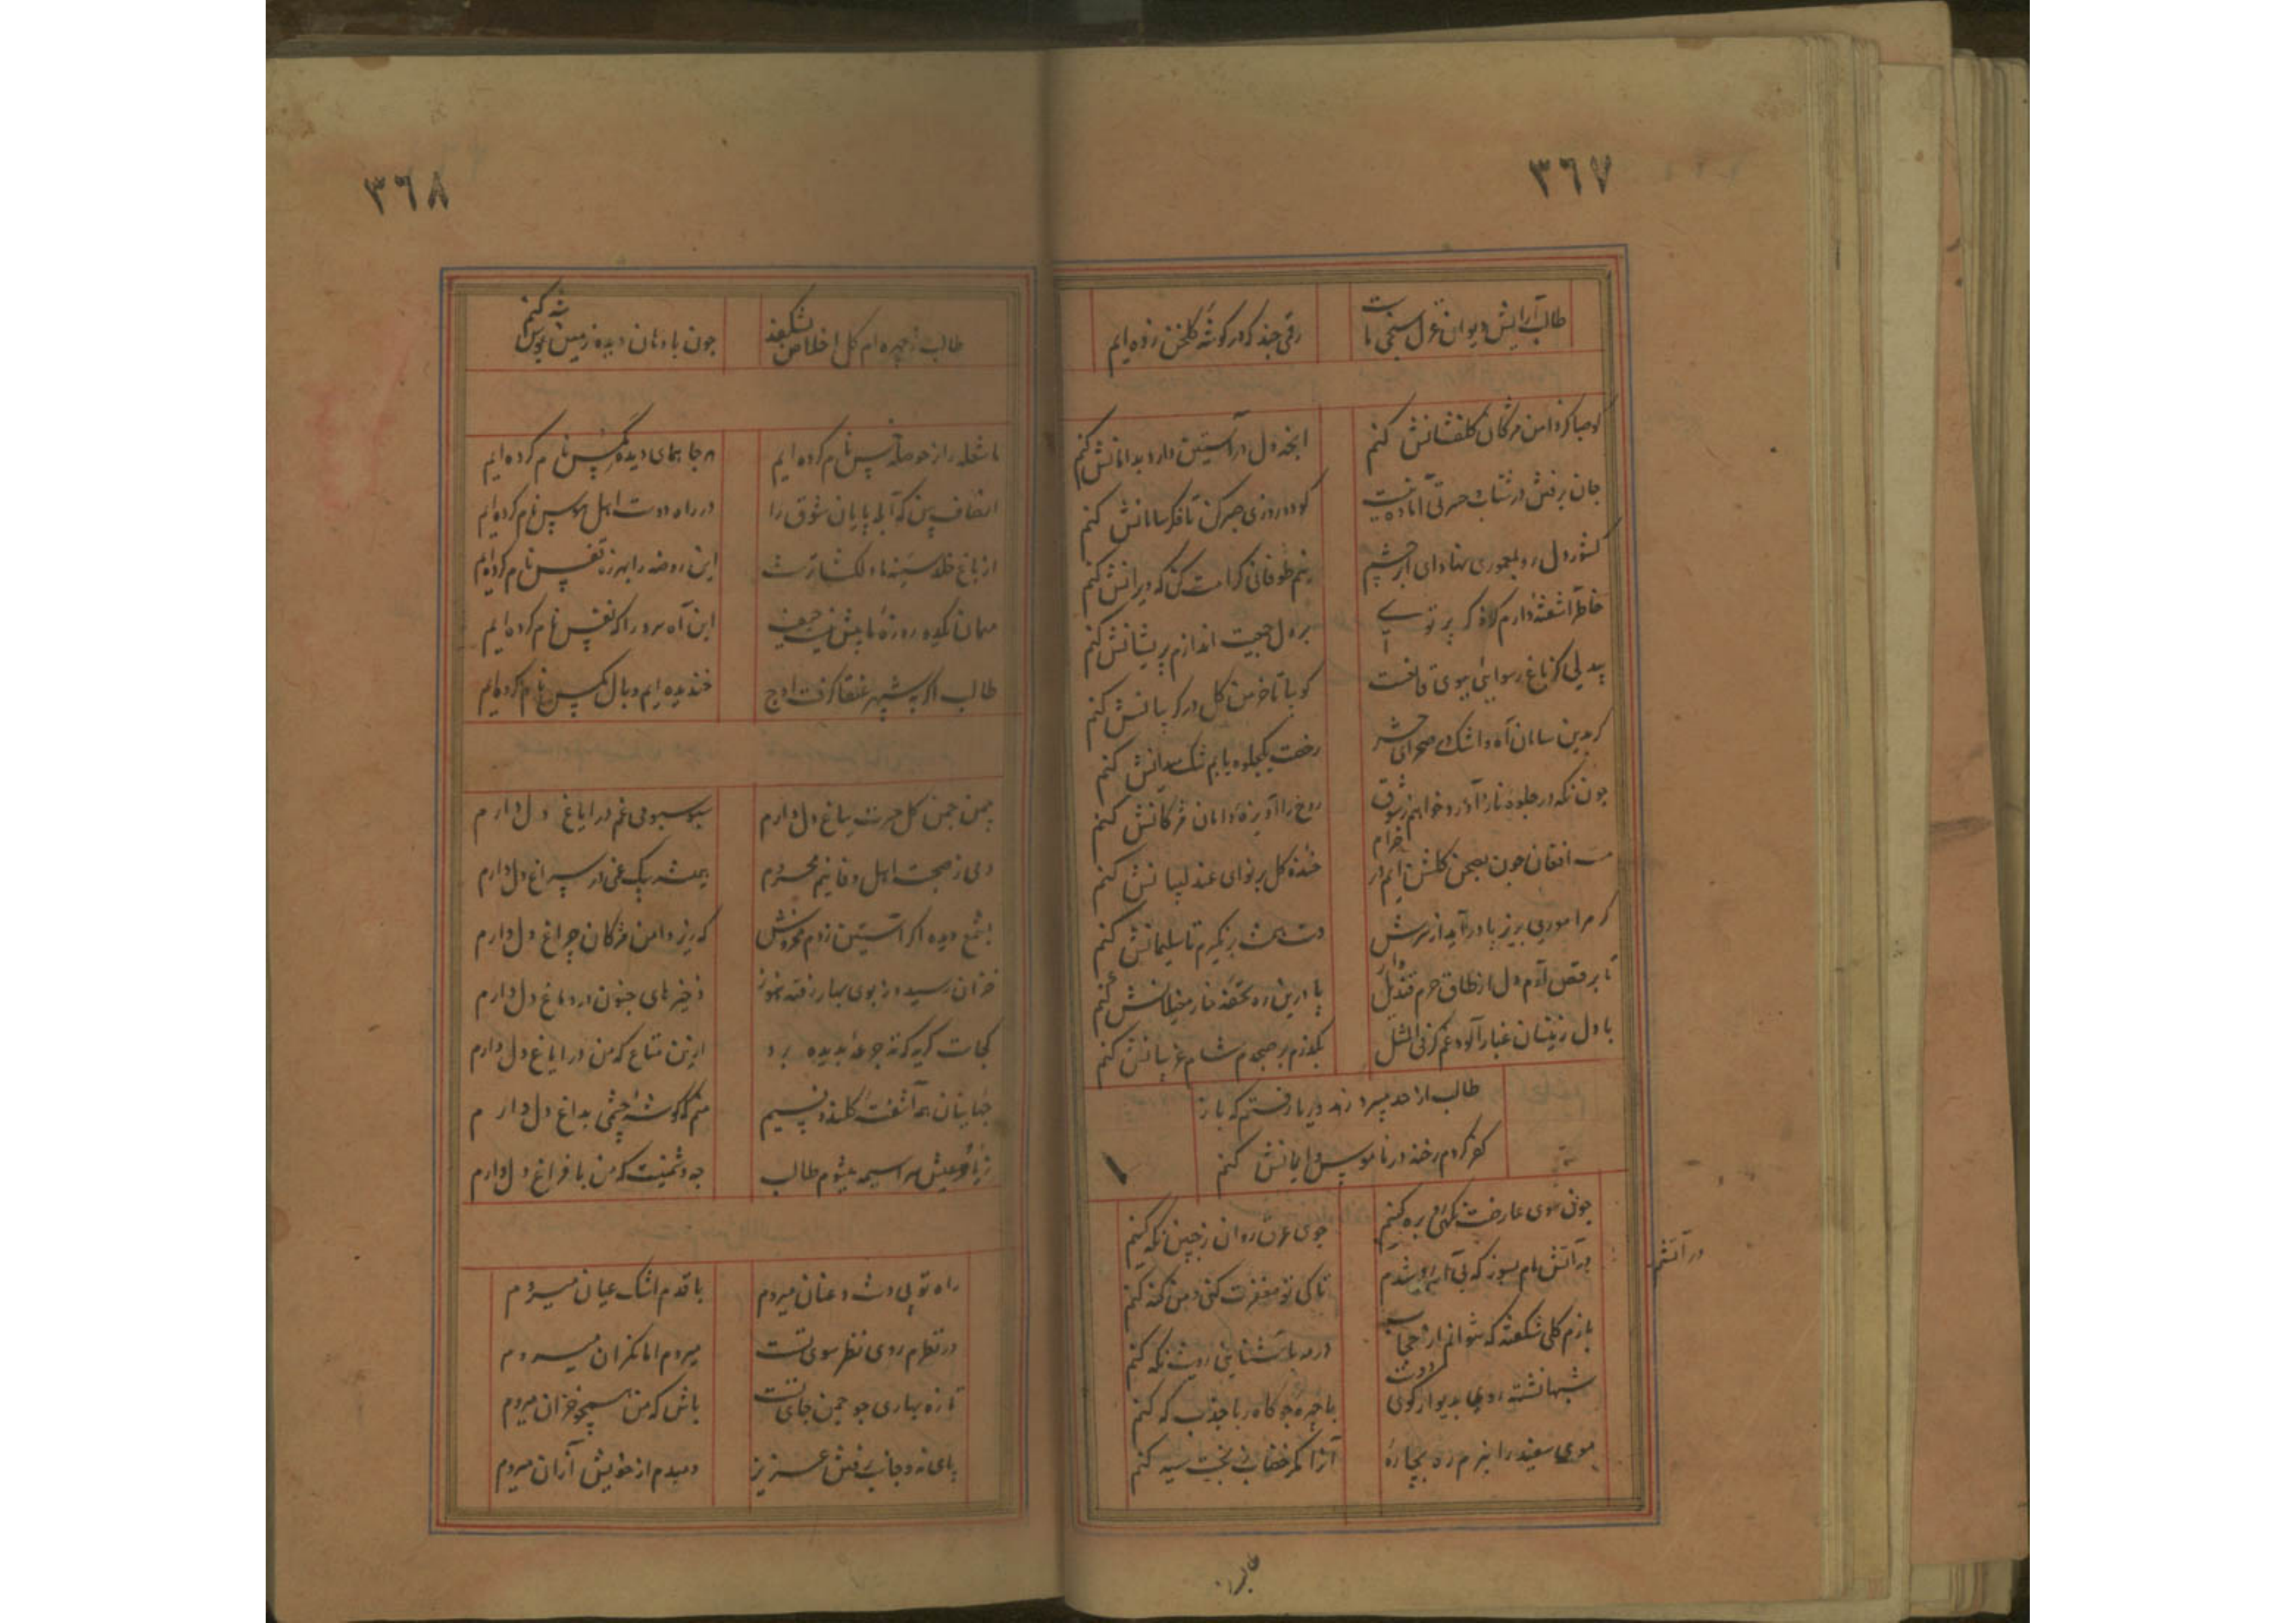 ٣٦٧
طالب آرایش دیوان غزل سنجی ماست
رقمی چند که در گوشه گلخن زده ایم
کو صبا کز دامن مژگان گلفشانش کنم
انچه دل در آستین دارد بدامانش کنم
جان برفتن در شتاب و حسرتی آماده نیست
کو دو روزی صبر کن تا فکر سامانش کنم
کشور دل رو بمعموری نهاد ای ابر چشم
نیم طوفانی کرامت کن که ویرانش کنم
خاطر آشفتهٔ دارم که گر پرتوی
بر دل جمعیت اندازم پریشانش کنم
بیدلی کز باغ رسوایی ببوی قانعست
کو بیا تا خرمن گل در گریبانش کنم
گر بدین سامان آه و اشک در صحرای حشر
رخصت یکجلوه یابم تنک میدانش کنم
چون نگه در جلوهٔ ناز آورد خواهم ز شوق
روح را آویزهٔ دامان مژگانش کنم
مست افغان چون بصحن گلشن آیم در خرام
خندهٔ گل بر نوای عندلیبانش کنم
گر مرا موری بزیر پا درآید از سرش
دست همت بر نگیرم تا سلیمانش کنم
تا برقص آرم دل از طاق حرم قندیل وار
پا درین ره تحفهٔ خار مغیلانش کنم
با دل زینسان غبار آلود غم گر فی المثل
بگذرم بر صبحدم شام غریبانش کنم
طالب از حد میبرد زهد و ریا رفتم که باز
کفر کردم رخنه در ناموس و ایمانش کنم
چون سوی عارضت نگهی رو بره کنیم
جوی عرق روان ز جبین نگه کنیم
در آتشم بسوز که بی آبرو شدم
تا کی تو مغفرت کنی و من گنه کنم
در آتشم
بازم گلی شکفته که نتوانم از حجاب
در مه بآشنایی رویت نگه کنم
شبها نشسته روی بدیوار کوی دوست
با چهرهٔ چو کاه ربا جذب که کنم
موی سفید را نبرم ره بچارهٔ
آنرا مگر خضاب ز بخت سیه کنم
طالب ز
٣٦٨
طالب ز چهره ام گل اخلاص بشکفد
چون با دهان دیده زمین بوس شه کنم
ما شعله را ز حوصله خس نام کرده ایم
هر جا همای دیده مگس نام کرده ایم
انصاف بین که آبله پایان شوق را
در راه دوست اهل هوس نام کرده ایم
از باغ خلد سینهٔ ما دلگشاترست
این روضه را بهرزه قفس نام کرده ایم
مهمان یکدو روزهٔ ما بیش نیست حیف
این آه سرد را که نفس نام کرده ایم
طالب اگر به شهپر عنقا گرفت اوج
خندیده ایم و بال مگس نام کرده ایم
چمن چمن گل حسرت بباغ دل دارم
سبو سبو می غم در ایاغ دل دارم
دمی ز صحبت اهل وفا نیم محروم
همیشه پیک غمی در سراغ دل دارم
بشمع دیده اگر آستین زدم مخروش
که زیر دامن مژگان چراغ دل دارم
خزان رسید و ز بوی بهار رفته هنوز
ذخیرهای جنون در دماغ دل دارم
کجاست گریه که ته جرعهٔ بدیده برد
ازین متاع که من در ایاغ دل دارم
جهانیان همه آشفتهٔ گلند و نسیم
منم که گوشهٔ چشمی بداغ دل دارم
ز یاد عیش سراسیمه میشوم طالب
چه دشمنیست که من با فراغ دل دارم
راه تو بی دست و عنان میروم
با قدم اشک عیان میروم
در نظرم روی نظر سوی تست
میروم اما نگران میروم
تازه بهاری چو چمن جای تست
باش که من همچو خزان میروم
پای نه و جانب رفتن عزیز
دمبدم از خویش از آن میروم